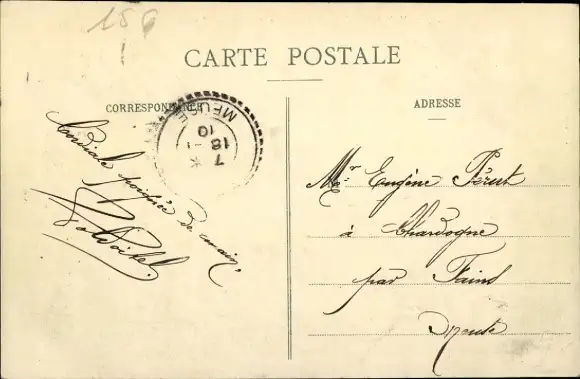 156
CARTE POSTALE
CORRESPONDANCE
ADRESSE
MEUSE
7
18 - 1
10
Cordiale poignée de main.
Mr Eugène Pérut
à Chardogne
par Fains